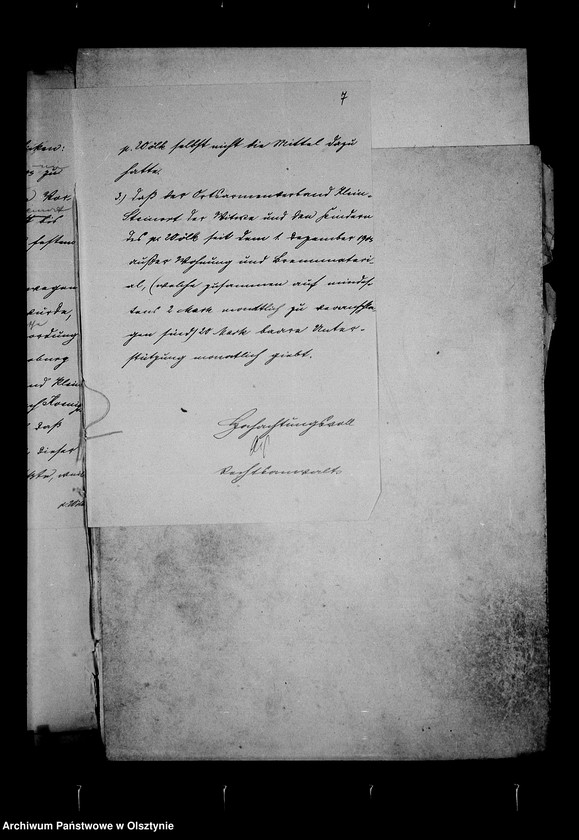 7
p. Wölk selbst nicht die Mittel dazu
hatte.
3) daß der Ortsarmenverband Klein-
Steinort der Witwe und den Kindern
des pp. Wölk seit dem 1. Dezember
außer Wohnung und Brennmateri-
al, (welche zusammen auf mindes-
tens 2 Mark monatlich zu veranschla-
gen sind) 20 Mark baare Unter-
stützung monatlich giebt.
Hochachtungsvoll
Rechtsanwalt.
zu
Vor-
bis
wegen
würde,
ordnung
und Klein
daß
dieser
Archiwum Państwowe w Olsztynie